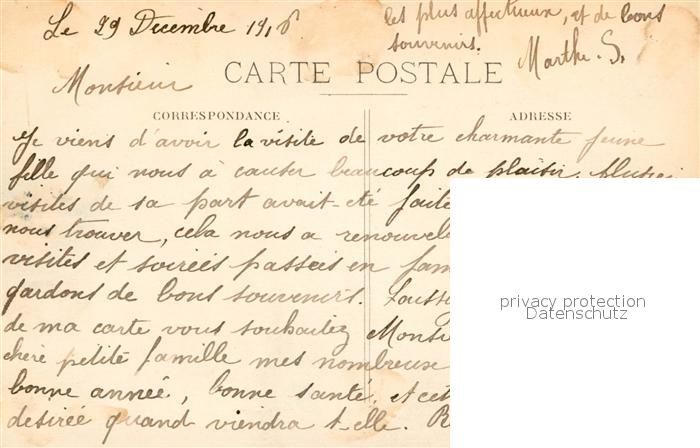 Le 29 Decembre 191
les plus affectueux, et de bons
souvenirs.
Marthe. S.
Monsieur
CARTE POSTALE
CORRESPONDANCE
ADRESSE
Je viens d'avoir la visite de votre charmante jeune
fille qui nous à causer beaucoup de plaisir.
visites de sa part avait-eté faite
nous trouver, cela nous a renouvelé
visites et soirées passées en fam
gardons de bons souvenirs.
de ma carte vous souhaitez Monsi
chère petite famille mes nombreux
bonne année, bonne santé, et cet
desirée quand viendra t-elle. R
privacy protection
Datenschutz